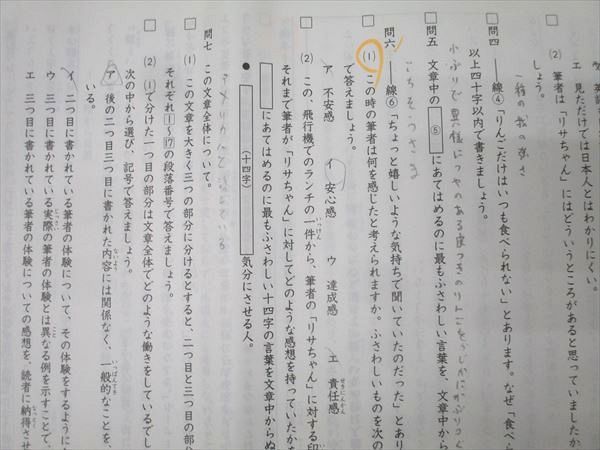 エ 見ただけでは日本人とはわかりにくい。
(2) 筆者は「リサちゃん」にはどういうところがあると思っていましたか
しょう。
問四 ――線④「りんごだけはいつも食べられない」とあります。なぜ「食べら
以上四十字以内で書きましょう。
問五 文章中の ⑤ にあてはめるのに最もふさわしい言葉を、文章中から
ごちそうさま
問六 ――線⑥「ちょっと嬉しいような気持ちで聞いていたのだった」とあり
(1) この時の筆者は何を感じたと考えられますか。ふさわしいものを次の
で答えましょう。
ア 不安感 イ 安心感 ウ 達成感 エ 責任感
せきにんかん
(2) この、飛行機でのランチの一件から、筆者の「リサちゃん」に対する印
いっけん
それまで筆者が「リサちゃん」に対してどのような感想を持っていたかを
にあてはめるのに最もふさわしい十四字の言葉を文章中からぬ
● (十四字) 気分にさせる人。
問七 この文章全体について。
(1) この文章を大きく三つの部分に分けるとすると、二つ目と三つ目の部分
それぞれ1〜17の段落番号で答えましょう。
(2) (1)で分けた一つ目の部分は文章全体でどのような働きをしているでし
次の中から選び、記号で答えましょう。
ア 後の二つ目三つ目に書かれた内容には関係なく、一般的なことを、
ないよう
いっぱんてき
いる。
イ 二つ目に書かれている筆者の体験について、その体験をするように
ウ 三つ目に書かれている実際の筆者の体験とは異なる例を示すことで、
じっさい
こと
エ 三つ目に書かれている筆者の体験についての感想を、読者に納得させ
なっとく